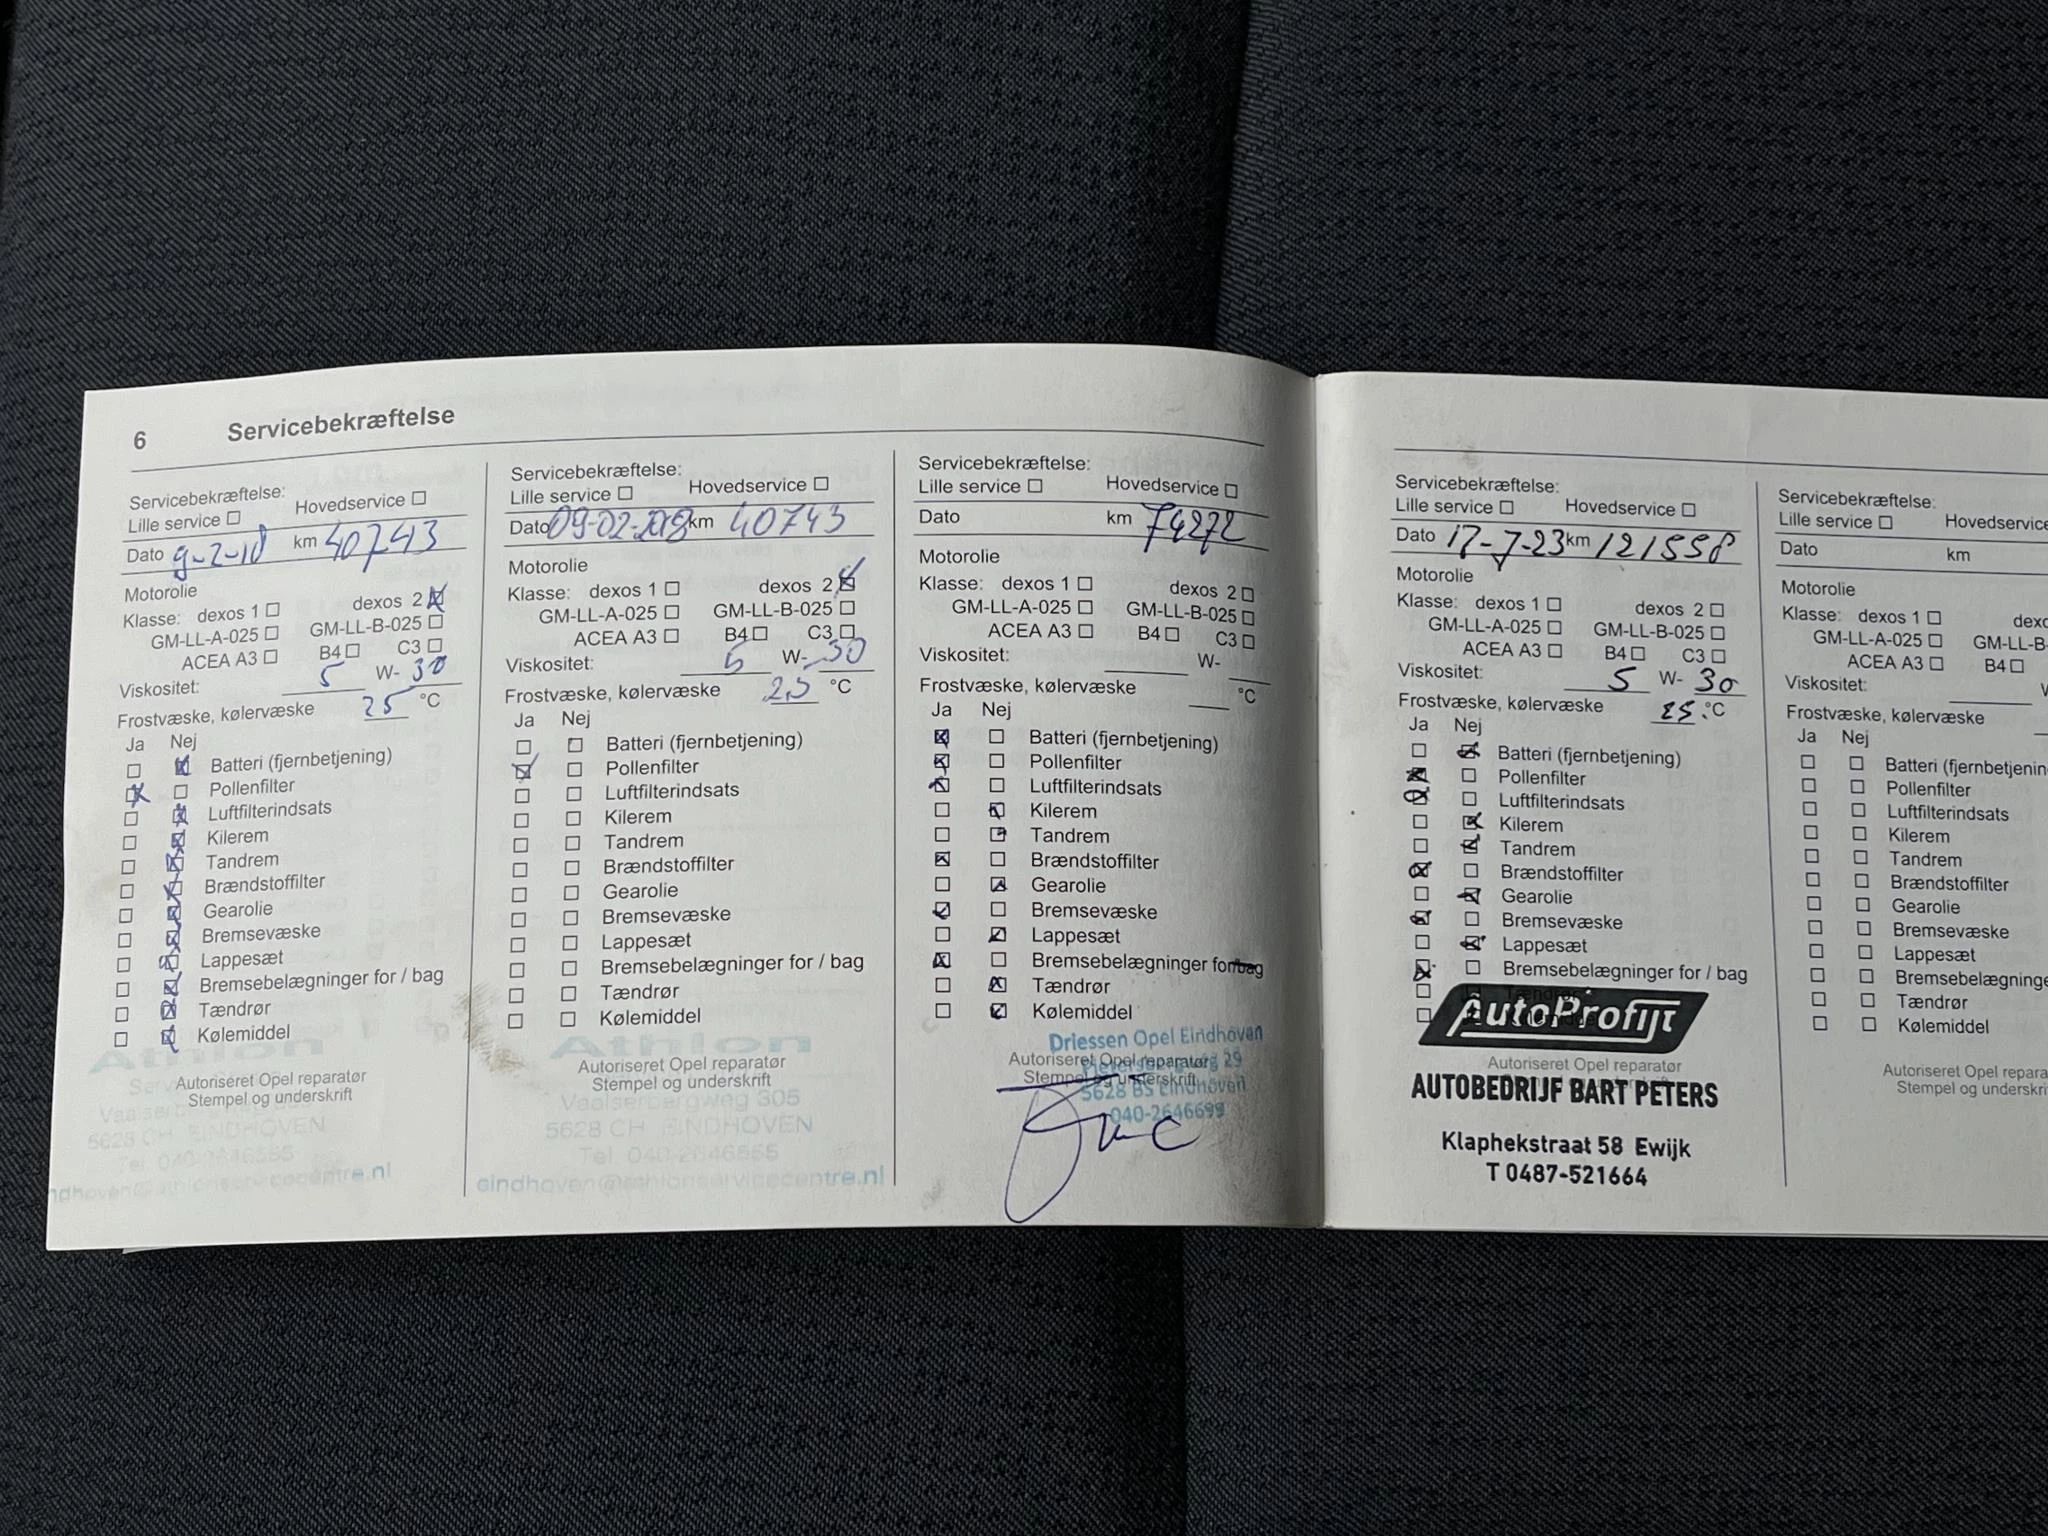 6 Servicebekræftelse
Servicebekræftelse:
Lille service Hovedservice
Dato 9-2-18 km 40743
Motorolie
Klasse: dexos 1 dexos 2
GM-LL-A-025 GM-LL-B-025
ACEA A3 B4 C3
Viskositet: 5 W- 30
Frostvæske, kølervæske 25 °C
Ja Nej
Batteri (fjernbetjening)
Pollenfilter
Luftfilterindsats
Kilerem
Tandrem
Brændstoffilter
Gearolie
Bremsevæske
Lappesæt
Bremsebelægninger for / bag
Tændrør
Kølemiddel
Athlon
Autoriseret Opel reparatør
Stempel og underskrift
5628 CH EINDHOVEN
Servicebekræftelse:
Lille service Hovedservice
Dato 09-02-2018 km 40743
Motorolie
Klasse: dexos 1 dexos 2
GM-LL-A-025 GM-LL-B-025
ACEA A3 B4 C3
Viskositet: 5 W- 30
Frostvæske, kølervæske 25 °C
Ja Nej
Batteri (fjernbetjening)
Pollenfilter
Luftfilterindsats
Kilerem
Tandrem
Brændstoffilter
Gearolie
Bremsevæske
Lappesæt
Bremsebelægninger for / bag
Tændrør
Kølemiddel
Athlon
Autoriseret Opel reparatør
Stempel og underskrift
Vaalserbergweg 305
5628 CH EINDHOVEN
Tel. 040-2646555
eindhoven@athlonservicecentre.nl
Servicebekræftelse:
Lille service Hovedservice
Dato km 74272
Motorolie
Klasse: dexos 1 dexos 2
GM-LL-A-025 GM-LL-B-025
ACEA A3 B4 C3
Viskositet: W-
Frostvæske, kølervæske °C
Ja Nej
Batteri (fjernbetjening)
Pollenfilter
Luftfilterindsats
Kilerem
Tandrem
Brændstoffilter
Gearolie
Bremsevæske
Lappesæt
Bremsebelægninger for / bag
Tændrør
Kølemiddel
Driessen Opel Eindhoven
Autoriseret Opel reparatør
29
Stempel og underskrift
5628 BS Eindhoven
040-2646699
Servicebekræftelse:
Lille service Hovedservice
Dato 17-7-23 km 121558
Motorolie
Klasse: dexos 1 dexos 2
GM-LL-A-025 GM-LL-B-025
ACEA A3 B4 C3
Viskositet: 5 W- 30
Frostvæske, kølervæske 25. °C
Ja Nej
Batteri (fjernbetjening)
Pollenfilter
Luftfilterindsats
Kilerem
Tandrem
Brændstoffilter
Gearolie
Bremsevæske
Lappesæt
Bremsebelægninger for / bag
Tændrør
AutoProfijt
Autoriseret Opel reparatør
AUTOBEDRIJF BART PETERS
Klaphekstraat 58 Ewijk
T 0487-521664
Servicebekræftelse:
Lille service Hovedservice
Dato km
Motorolie
Klasse: dexos 1
GM-LL-A-025 GM-LL-B-
ACEA A3 B4
Viskositet:
Frostvæske, kølervæske
Ja Nej
Batteri (fjernbetjenin
Pollenfilter
Luftfilterindsats
Kilerem
Tandrem
Brændstoffilter
Gearolie
Bremsevæske
Lappesæt
Bremsebelægninge
Tændrør
Kølemiddel
Autoriseret Opel repara
Stempel og undersk